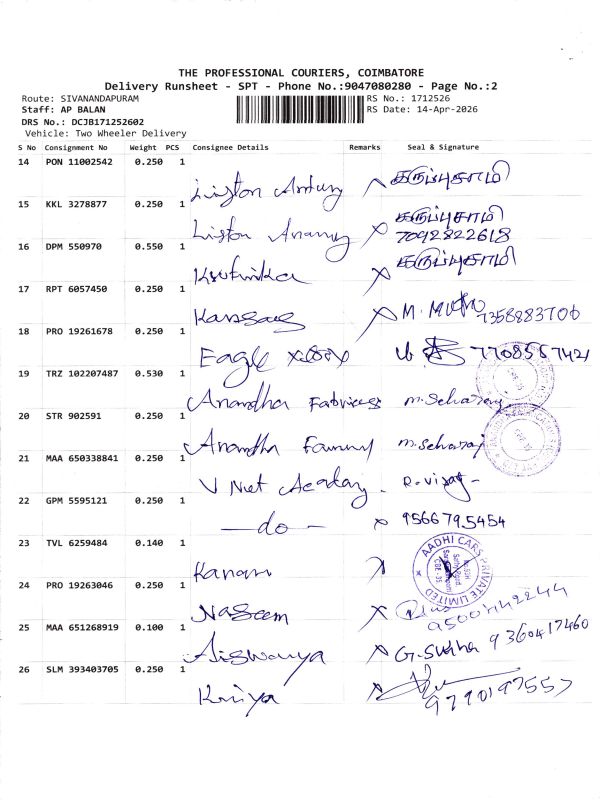 THE PROFESSIONAL COURIERS, COIMBATORE
Delivery Runsheet - SPT - Phone No.:9047080280 - Page No.:2
Route: SIVANANDAPURAM
RS No.: 1712526
Staff: AP BALAN
RS Date: 14-Apr-2026
DRS No.: DCJB171252602
Vehicle: Two Wheeler Delivery
S No Consignment No Weight PCS Consignee Details Remarks Seal & Signature
14 PON 11002542 0.250 1
Liston Antony கருப்புசாமி
15 KKL 3278877 0.250 1
Liston கருப்புசாமி
7092822618
16 DPM 550970 0.550 1
கருப்புசாமி
17 RPT 6057450 0.250 1
M. Muthu 7358883706
18 PRO 19261678 0.250 1
Eagle 7708567421
19 TRZ 102207487 0.530 1
Anandha Fabrics m. Selvaraj
20 STR 902591 0.250 1
Anandha m. Selvaraj
21 MAA 650338841 0.250 1
V Net Academy. R. Vijay
22 GPM 5595121 0.250 1
—do— 9566795454
23 TVL 6259484 0.140 1
AADHI CARS PRIVATE LIMITED
24 PRO 19263046 0.250 1
Naseem 9500442244
25 MAA 651268919 0.100 1
Aiswarya G. 9360417460
26 SLM 393403705 0.250 1
9790197557